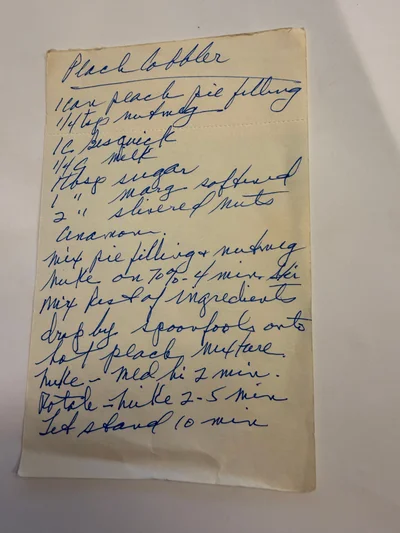 Peach Cobbler
1 can peach pie filling
1/4 tsp nutmeg
1 C Bisquick
1/4 C milk
1 Tbsp sugar
1 " marg softened
2 " slivered nuts
Cinamon.
mix pie filling & nutmeg
nuke on 70% - 4 min.
mix Rest of ingredients
drop by spoonfools onto
hot peach mixture.
nuke - Med hi 2 min.
Rotate - nuke 2-5 min
Let stand 10 min